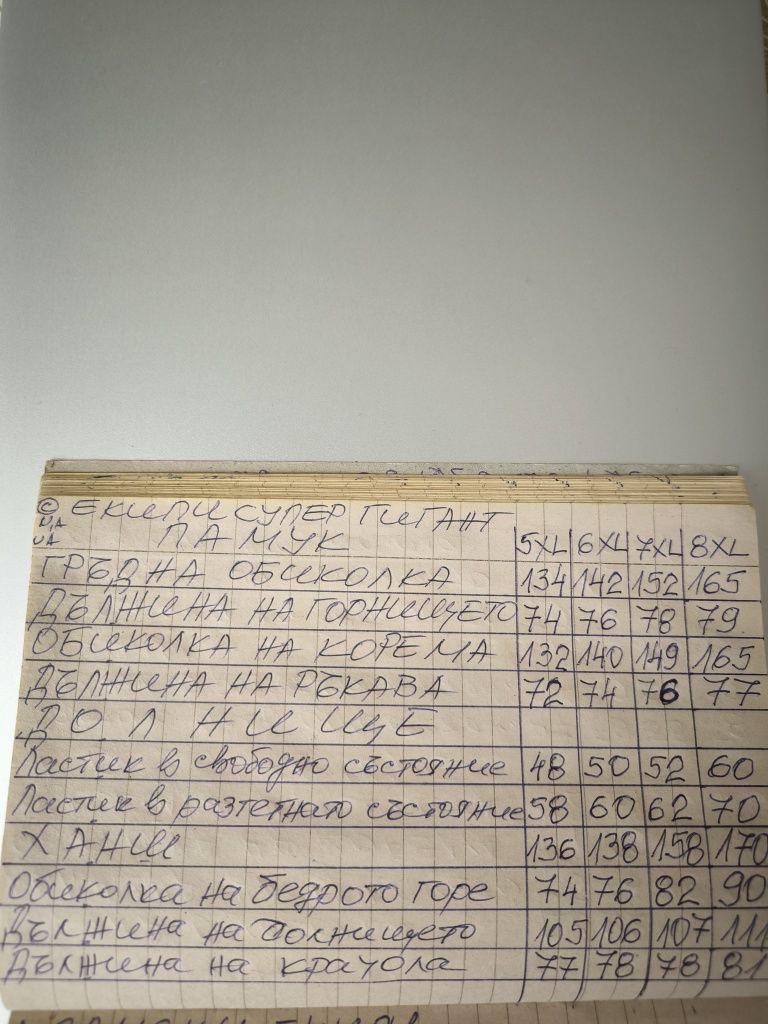 © ЕКИПИ СУПЕР ГИГАНТ
ПАМУК 5XL 6XL 7XL 8XL
ГРЪДНА ОБИКОЛКА 134 142 152 165
ДЪЛЖИНА НА ГОРНИЩЕТО 74 76 78 79
ОБИКОЛКА НА КОРЕМА 132 140 149 165
ДЪЛЖИНА НА РЪКАВА 72 74 76 77
ДОЛНИЩЕ
Ластик в свободно състояние 48 50 52 60
Ластик в разтегнато състояние 58 60 62 70
ХАНШ 136 138 158 170
Обиколка на бедрото горе 74 76 82 90
Дължина на долнището 105 106 107 111
Дължина на крачола 77 78 78 81